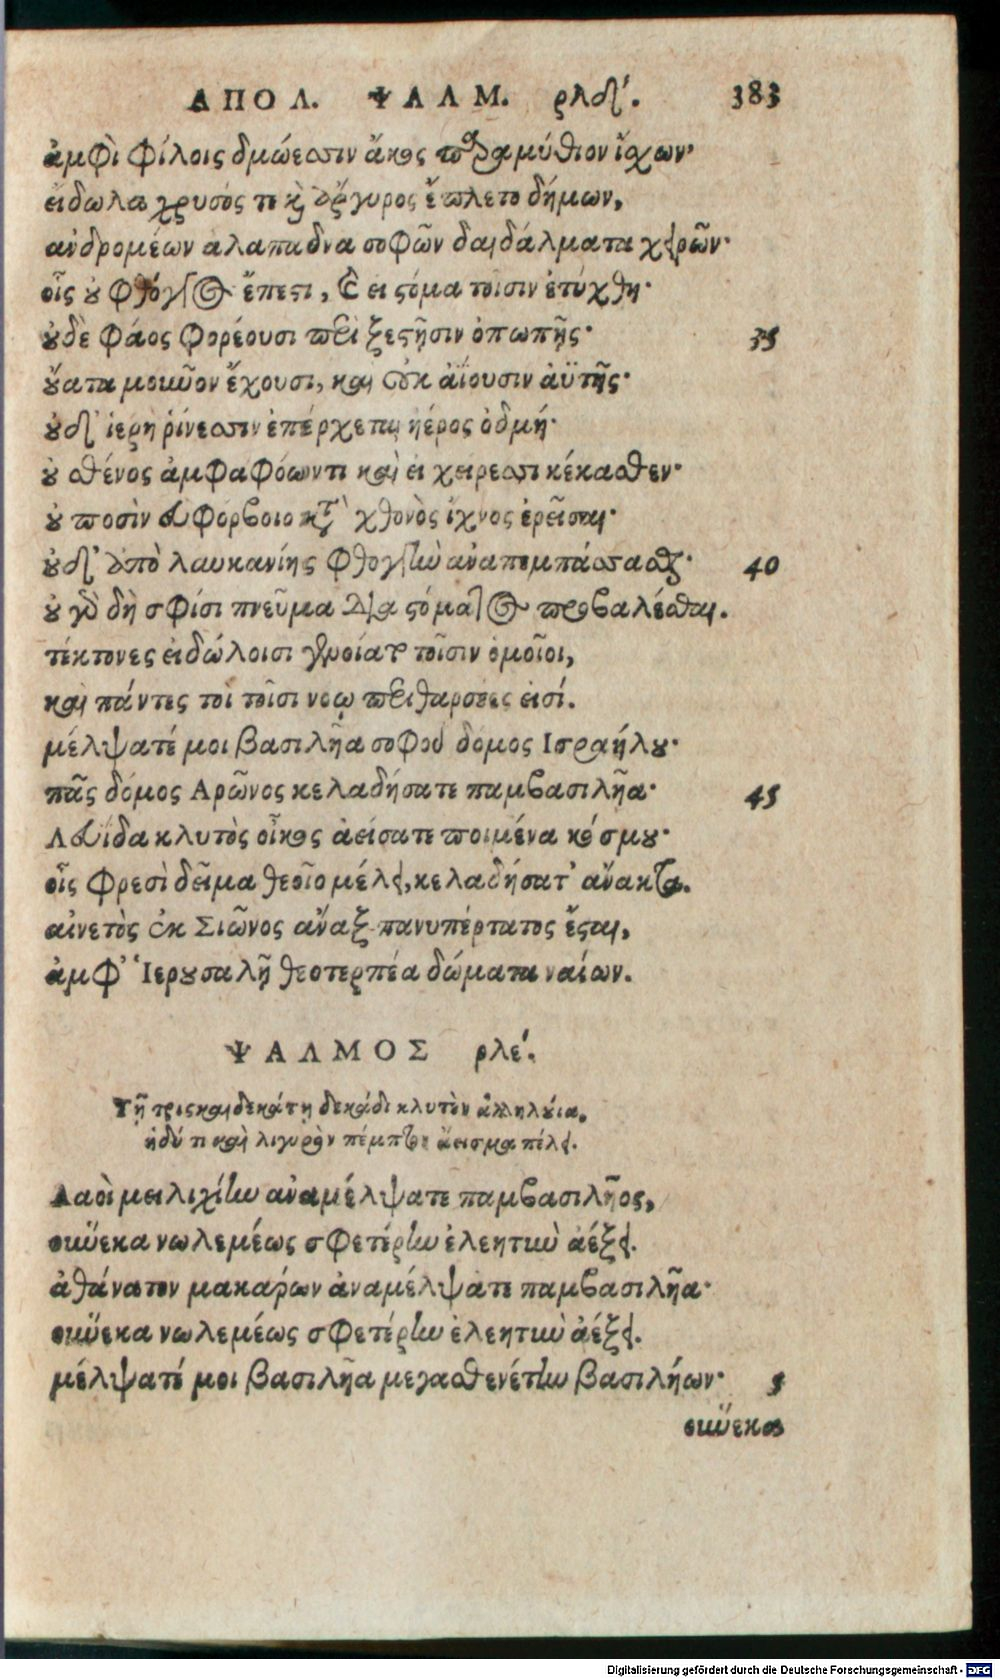 ΑΠΟΛ. ΨΑΛΜ. ρλδ'. 383
ἀμφὶ φίλοις δμώεσσιν ἄκος παραμύθιον ἴσχων·
εἴδωλα χρυσός τε καὶ ἄργυρος ἔπλετο δήμων,
ἀνδρομέων ἀλαπαδνὰ σοφῶν δαιδάλματα χειρῶν·
οἷς οὐ φθόγγος ἔπεστι, καὶ εἰ στόμα τοῖσιν ἐτύχθη·
οὐδὲ φάος φορέουσι περὶ ξεστῇσιν ὀπωπῇς· 35
οὔατα μοιῶον ἔχουσι, καὶ οὐκ ἀΐουσιν ἀϋτῆς·
οὐδ' ἱερὴ ῥίνεσσιν ἐπέρχεται ἠέρος ὀδμή·
οὐ σθένος ἀμφαφόωντι καὶ εἰ χείρεσσι κέκασθεν·
οὐ ποσὶν εὐφόρβοιο κατὰ χθονὸς ἴχνος ἐρεῖσαι·
οὐδ' ὑπὸ λαυκανίης φθογγὴν ἀναπεμπάσσασθαι· 40
οὐ γὰρ δὴ σφίσι πνεῦμα διὰ στόματος προβαλέσθαι.
τέκτονες εἰδώλοισι γενοίατο τοῖσιν ὁμοῖοι,
καὶ πάντες τοὶ τοῖσι νόῳ περιθαρσέες εἰσί.
μέλψατέ μοι βασιλῆα σοφοῦ δόμος Ισραήλου·
πᾶς δόμος Αρῶνος κελαδήσατε παμβασιλῆα· 45
Λευΐδα κλυτὸς οἶκος ἀείσατε ποιμένα κόσμου·
οἷς φρεσὶ δεῖμα θεοῖο μέλει, κελαδήσατ' ἄνακτα.
αἰνετὸς ἐκ Σιῶνος ἄναξ πανυπέρτατος ἔσται,
ἀμφ' Ἱερουσαλὴμ θεοτερπέα δώματα ναίων.
ΨΑΛΜΟΣ ρλε'.
Τῇ τρισκαιδεκάτῃ δεκάδι κλυτὸν ἀλληλούια.
ἡδύ τι καὶ λιγυρὸν πέμπτον ἄεισμα πέλει.
Λαοὶ μειλιχίην ἀναμέλψατε παμβασιλῆος,
οὕνεκα νωλεμέως σφετέρην ἐλεητὺν ἀέξει.
ἀθάνατον μακάρων ἀναμέλψατε παμβασιλῆα·
οὕνεκα νωλεμέως σφετέρην ἐλεητὺν ἀέξει.
μέλψατέ μοι βασιλῆα μεγασθενέτην βασιλήων· 5
οὕνεκα
Digitalisierung gefördert durch die Deutsche Forschungsgemeinschaft - DFG